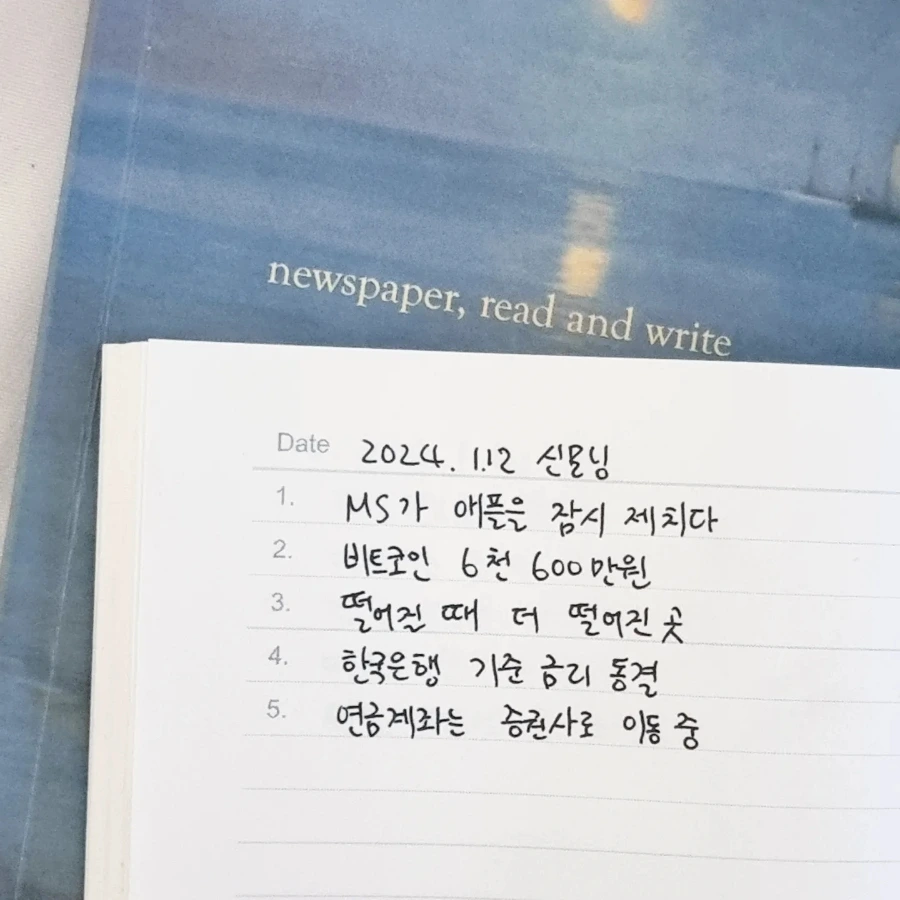 newspaper, read and write
Date 2024. 1.12 신문닝
1. MS가 애플을 잠시 제치다
2. 비트코인 6천 600만원
3. 떨어질 때 더 떨어진 곳
4. 한국은행 기준 금리 동결
5. 연금계좌는 증권사로 이동 중